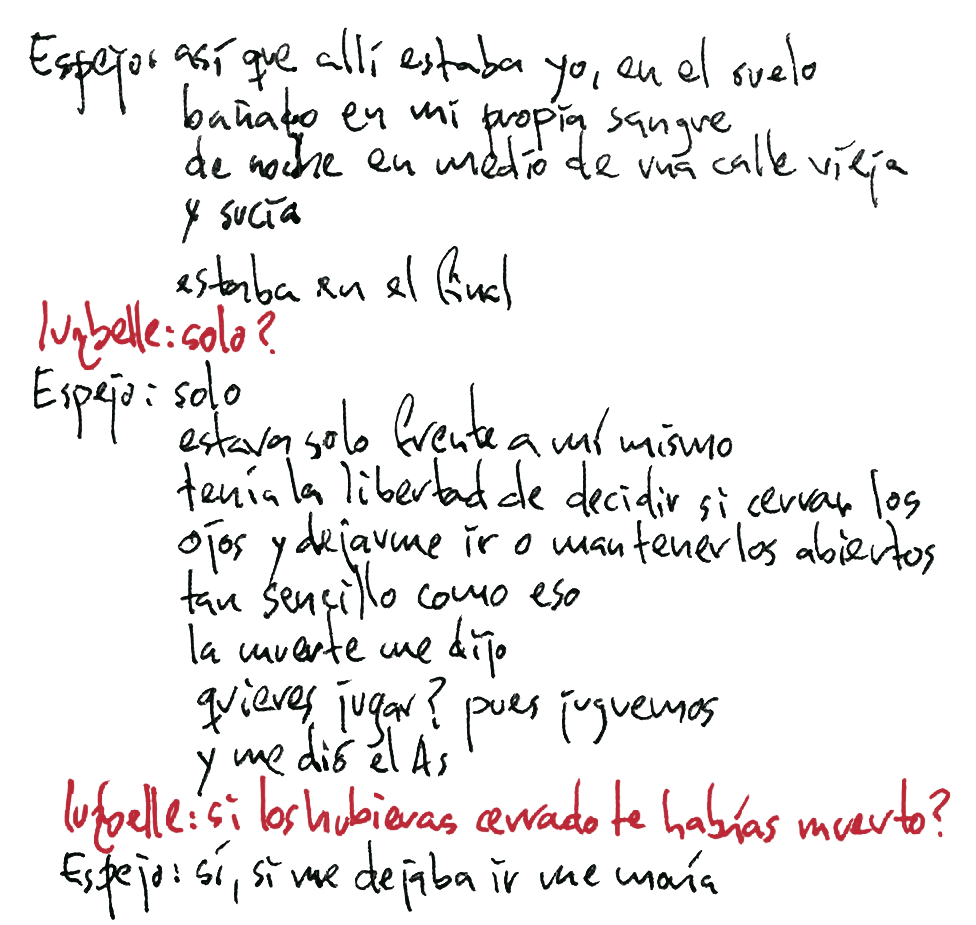 Espejo: así que allí estaba yo, en el suelo
bañado en mi propia sangre
de noche en medio de una calle vieja
y sucia
estaba en el final
luzbelle: solo?
Espejo: solo
estava solo frente a mí mismo
tenía la libertad de decidir si cerrar los
ojos y dejarme ir o mantenerlos abiertos
tan sencillo como eso
la muerte me dijo
quieres jugar? pues juguemos
y me dió el As
luzbelle: si los hubieras cerrado te habías muerto?
Espejo: sí, si me dejaba ir me moría